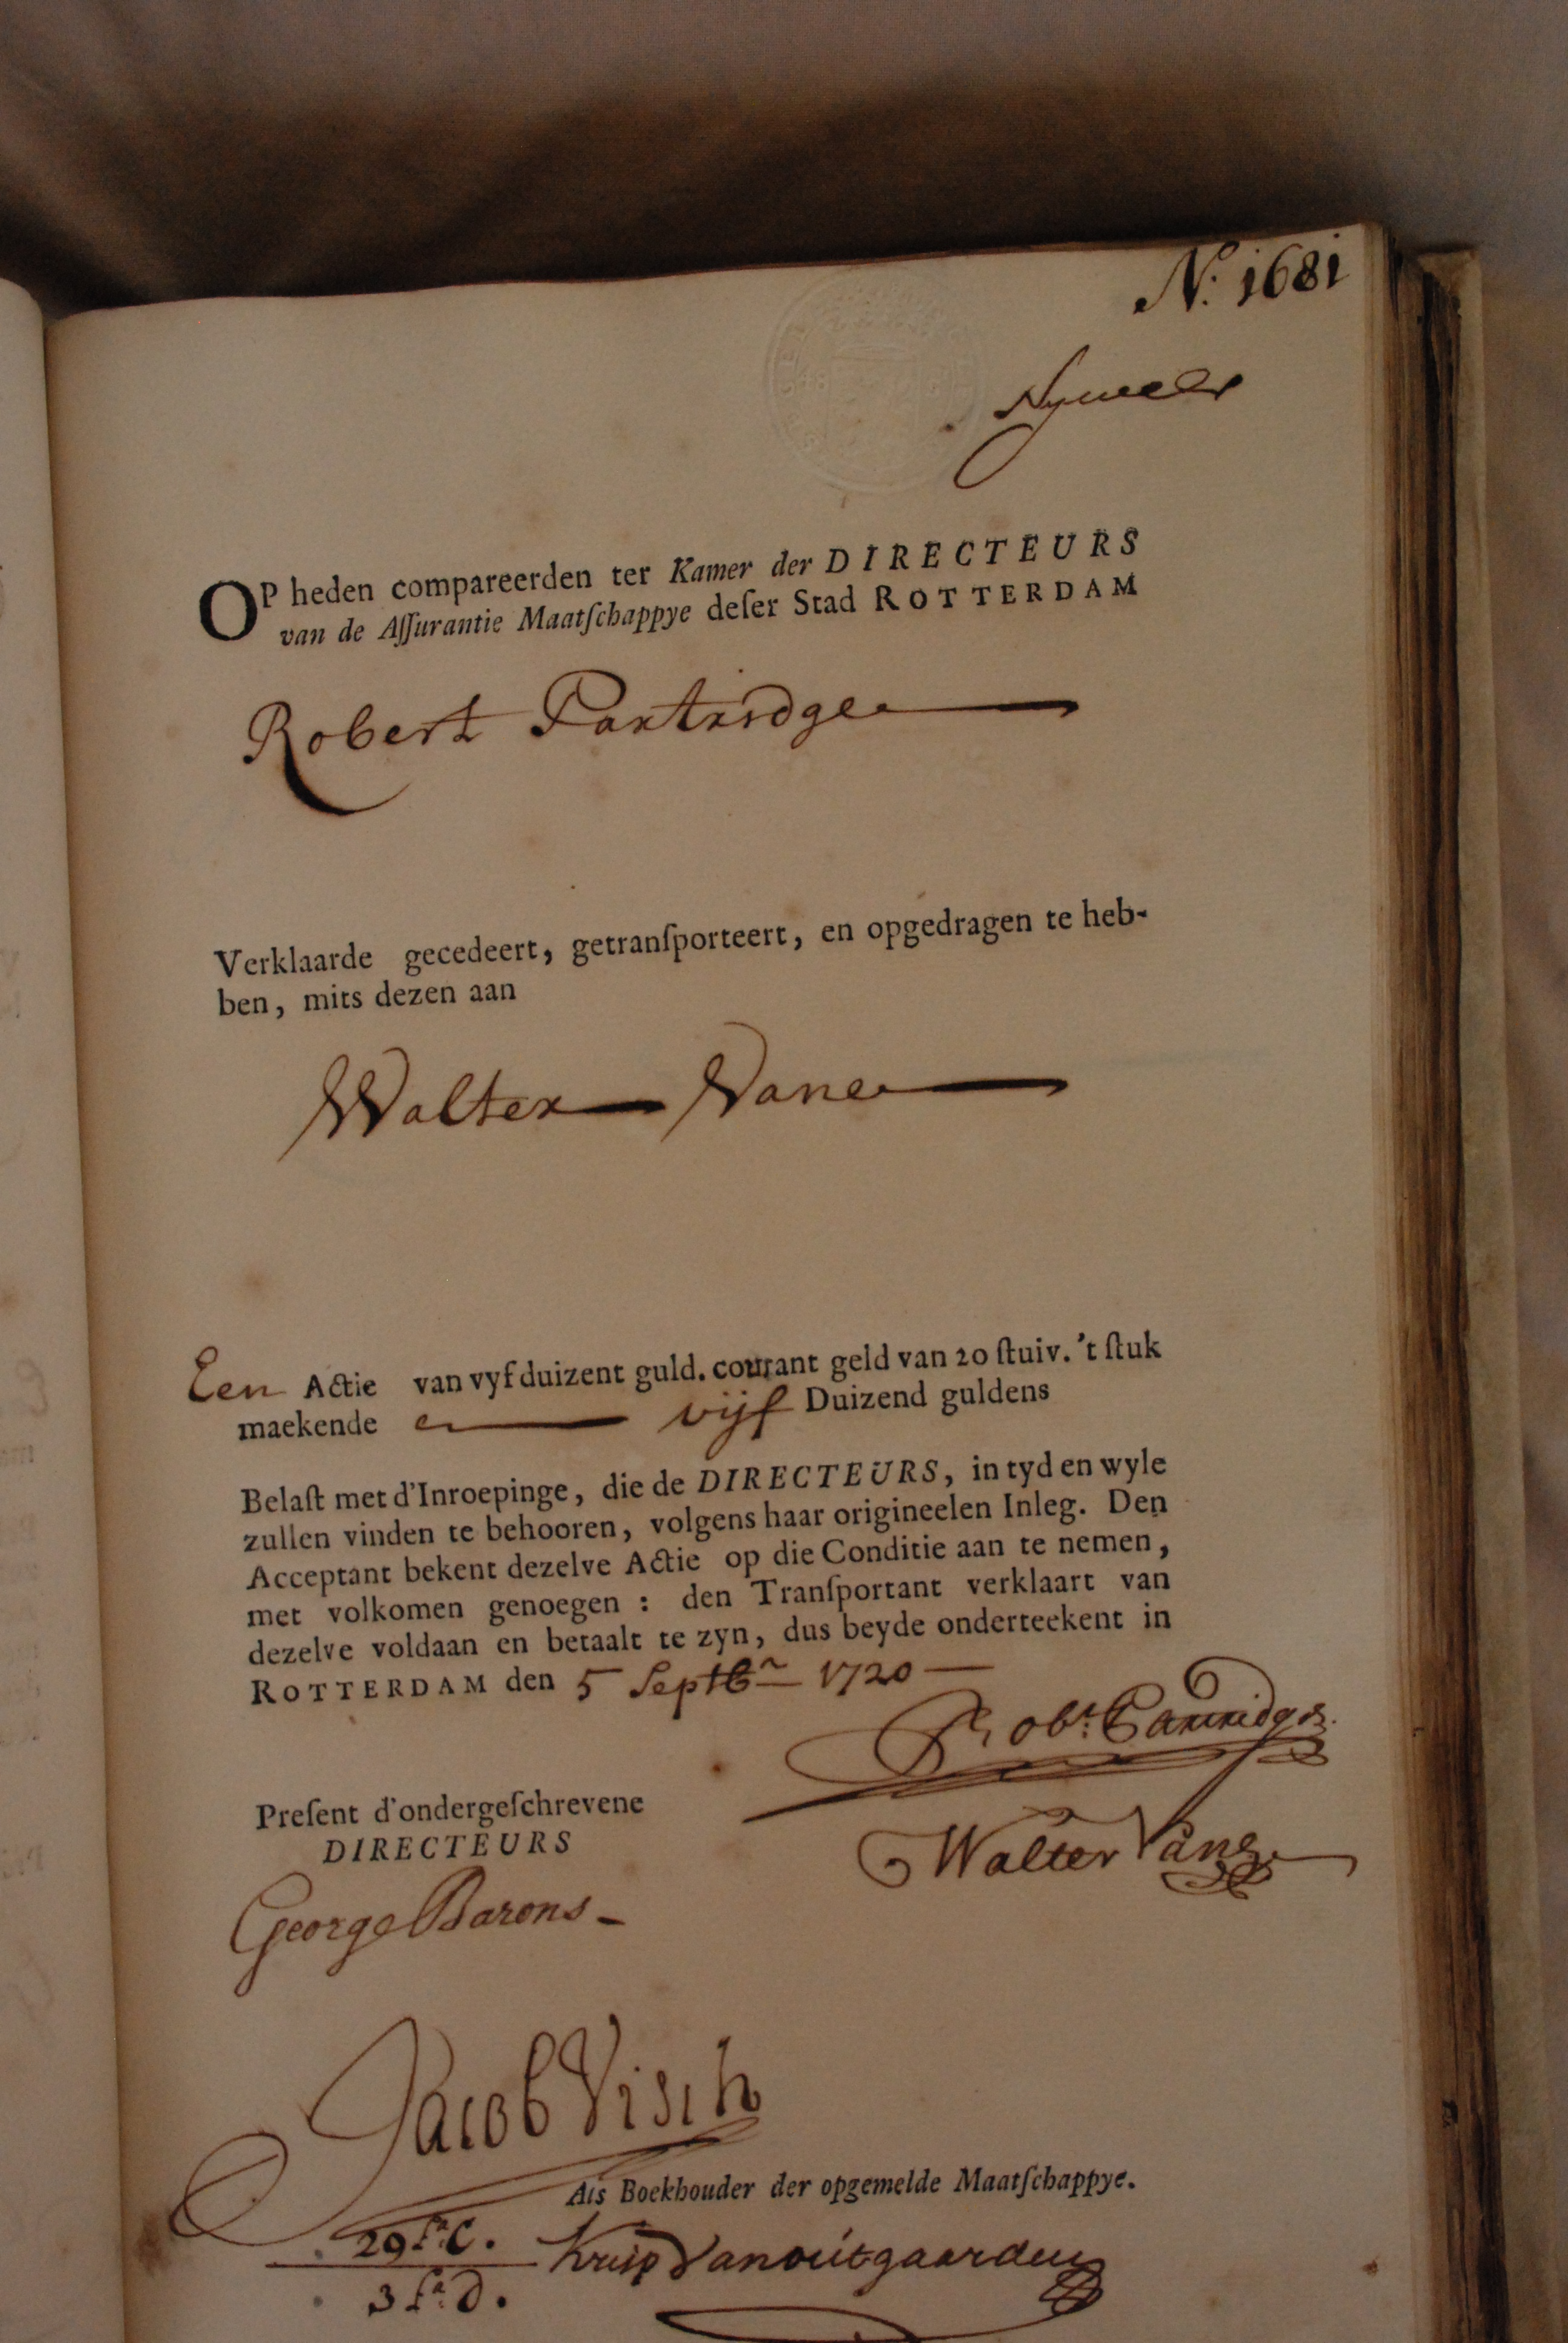 N.o 1681
OP heden compareerden ter Kamer der DIRECTEURS
van de Aſſurantie Maatſchappye deſer Stad ROTTERDAM
Robert Partridge
Verklaarde gecedeert, getranſporteert, en opgedragen te heb-
ben, mits dezen aan
Walter Vane
Een Actie van vyf duizent guld. courant geld van 20 ſtuiv. 't ſtuk
maekende vijf Duizend guldens
Belaſt met d'Inroepinge, die de DIRECTEURS, in tyd en wyle
zullen vinden te behooren, volgens haar origineelen Inleg. Den
Acceptant bekent dezelve Actie op die Conditie aan te nemen,
met volkomen genoegen : den Tranſportant verklaart van
dezelve voldaan en betaalt te zyn, dus beyde onderteekent in
ROTTERDAM den 5 Septbr 1720
Robt: Partridge
Preſent d'ondergeſchrevene
DIRECTEURS
Walter Vane
George Barons
Jacob Visch
Als Boekhouder der opgemelde Maatſchappye.
29 fo. C. Kruip Vanoutgaarden
3 fo. D.